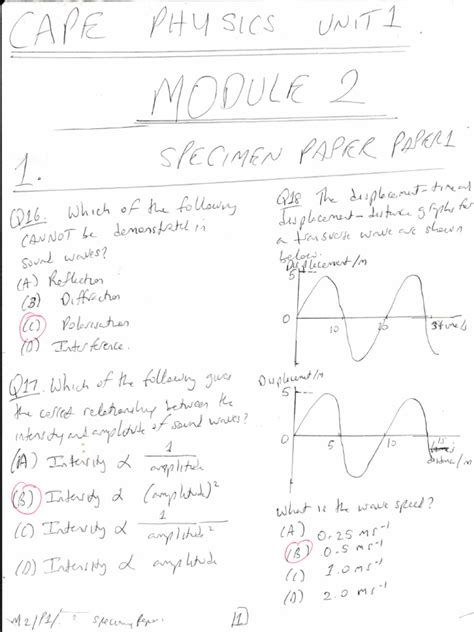 CAPE PHYSICS UNIT 1.
MODULE 2
1. SPECIMEN PAPER PAPER 1
Q16. Which of the following
CANNOT be demonstrated in
sound waves?
(A) Reflection
(B) Diffraction
(C) Polarisation
(D) Interference.
Q17. Which of the following gives
the correct relationship between the
intensity and amplitude of sound waves?
(A) Intensity ∝ 1/amplitude
(B) Intensity ∝ (amplitude)²
(C) Intensity ∝ 1/amplitude²
(D) Intensity ∝ amplitude
Q18 The displacement-time and
displacement-distance graphs for
a transverse wave are shown
below.
Displacement/m
5
0
10
20
30 time/s
Displacement/m
5
0
5
10
15
distance/m
What is the wave speed?
(A) 0.25 ms⁻¹
(B) 0.5 ms⁻¹
(C) 1.0 ms⁻¹
(D) 2.0 ms⁻¹
M2/P1/ Specimen Paper.
[1]